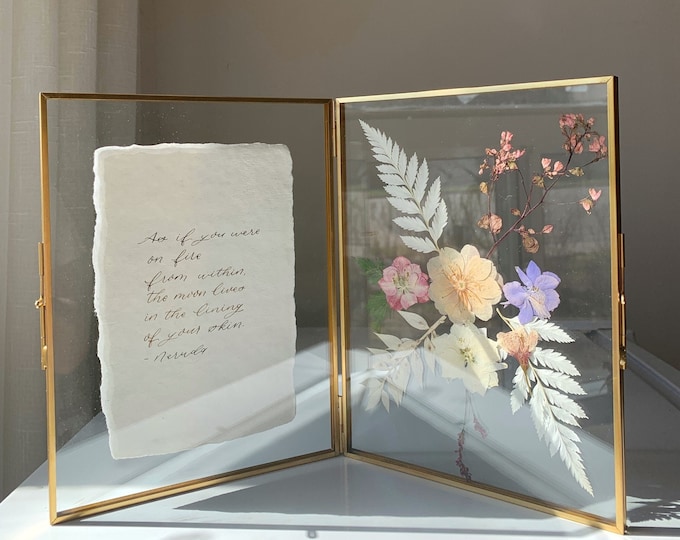 As if you were
on fire
from within,
the moon lives
in the lining
of your skin.
- Neruda